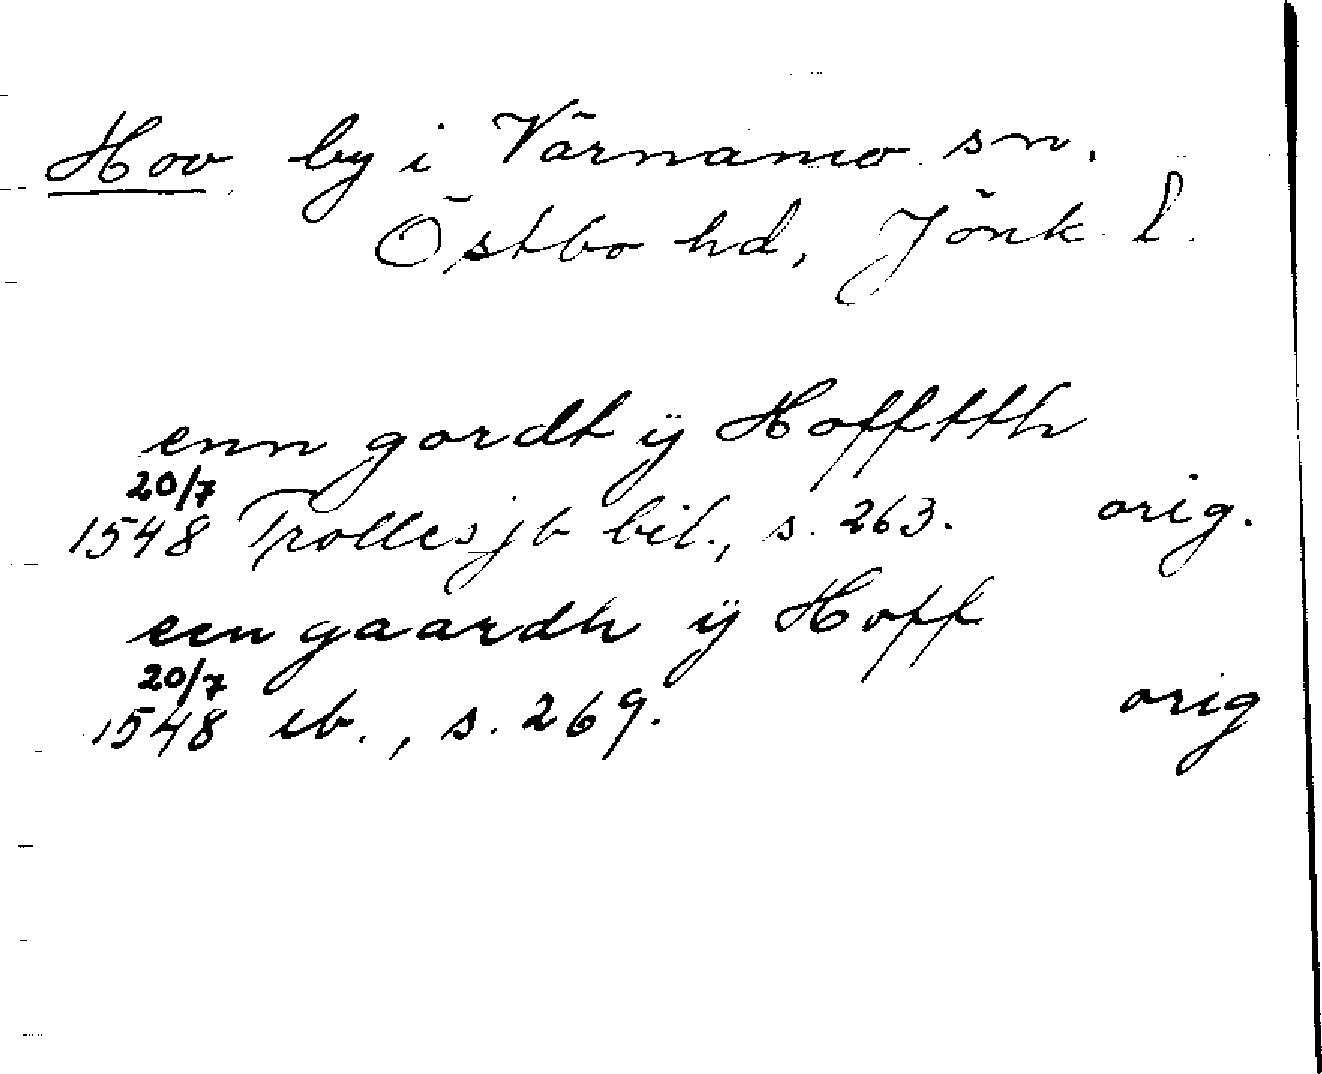 Hov by i Värnamo sn.
Östbo hd, Jönk. l.
enn gordt ÿ Hofftth
20/7
1548 Trolles jb bil., s. 263. orig.
een gaardh ÿ Hoff
20/7
1548 ib., s. 269. orig